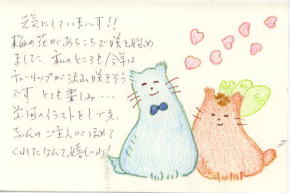 元気にしていま〜す!!
梅の花があちこちで咲き始め
ました 私のところも今年は
チューリップが沢山咲きそう
です とても楽しみ…
のイラストをしづ
さんのご主人が
くれたなんて嬉しいわ!